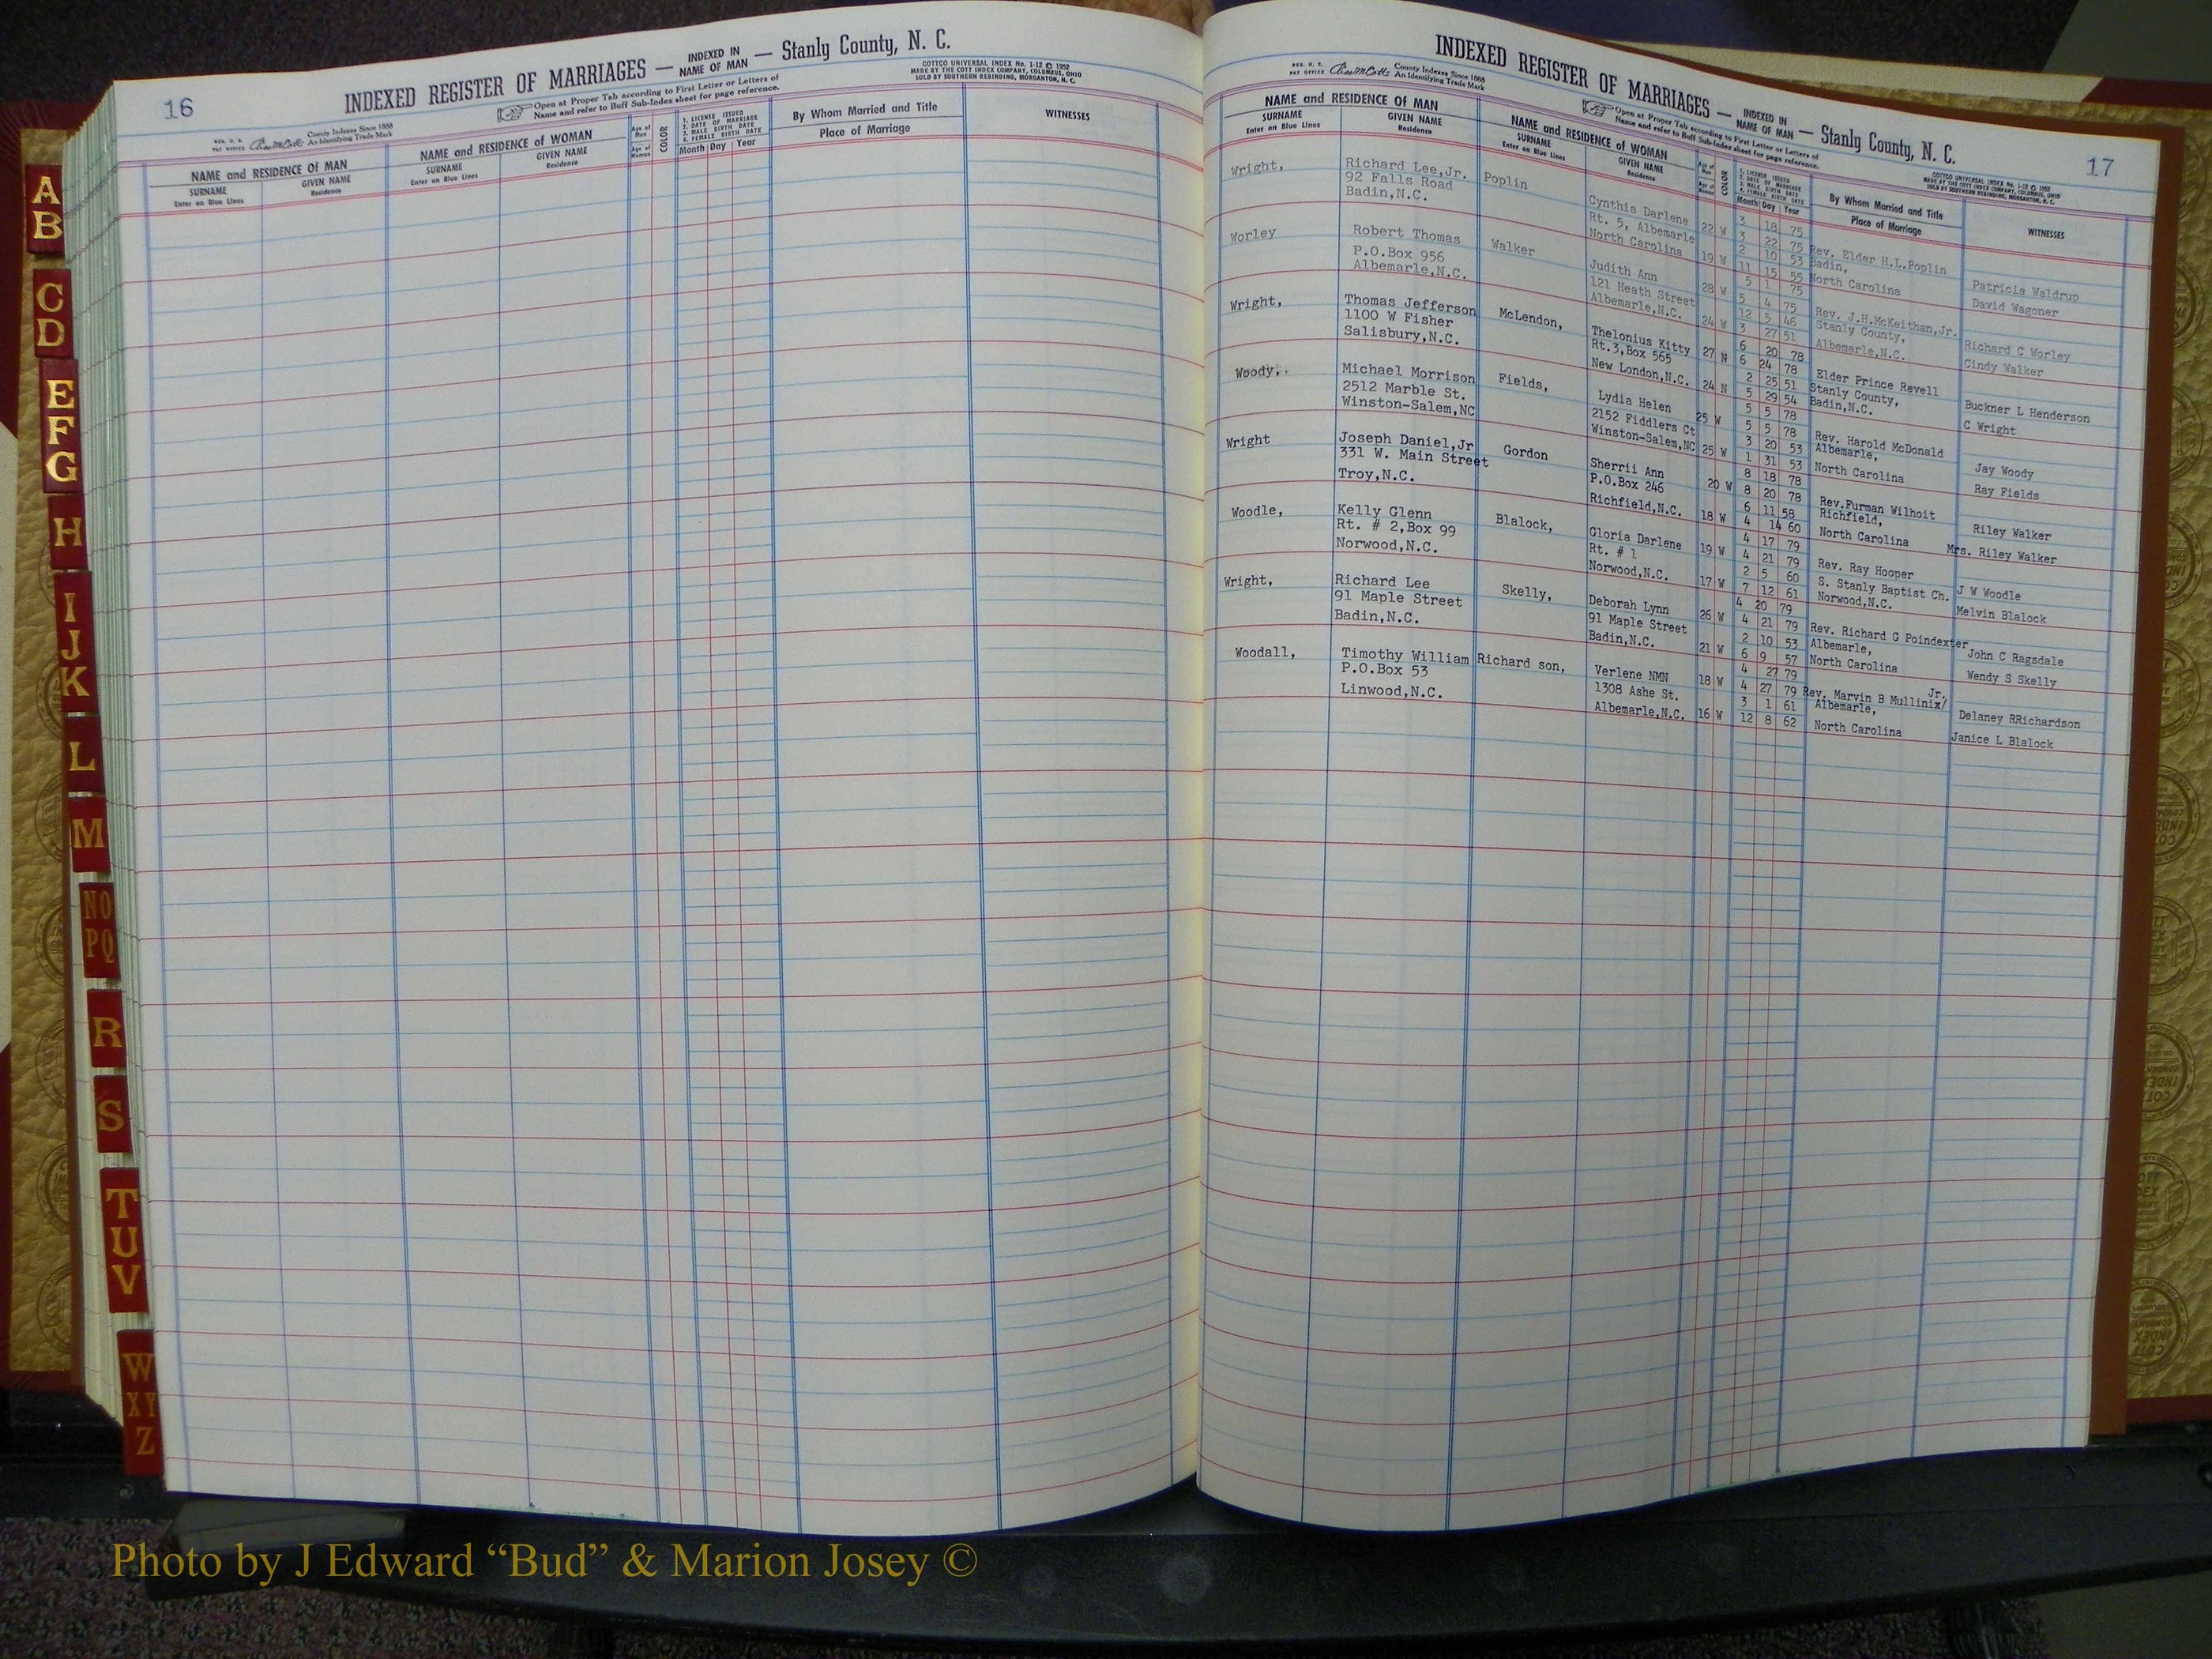 16
INDEXED REGISTER OF MARRIAGES — INDEXED IN NAME OF MAN — Stanly County, N. C.
REG. U. S. PAT OFFICE
County Indexes Since 1888
An Identifying Trade Mark
Open at Proper Tab according to First Letter or Letters of
Name and refer to Buff Sub-Index sheet for page reference.
COTTCO UNIVERSAL INDEX No. 1-12 © 1952
MADE BY THE COTT INDEX COMPANY, COLUMBUS, OHIO
SOLD BY SOUTHERN REBINDING, MORGANTON, N. C.
NAME and RESIDENCE OF MAN
SURNAME
Enter on Blue Lines
GIVEN NAME
Residence
NAME and RESIDENCE OF WOMAN
SURNAME
Enter on Blue Lines
GIVEN NAME
Residence
Age of Man
Age of Woman
COLOR
1. LICENSE ISSUED
2. DATE OF MARRIAGE
3. MALE BIRTH DATE
4. FEMALE BIRTH DATE
Month Day Year
By Whom Married and Title
Place of Marriage
WITNESSES
17
INDEXED REGISTER OF MARRIAGES — INDEXED IN NAME OF MAN — Stanly County, N. C.
REG. U. S. PAT OFFICE
County Indexes Since 1888
An Identifying Trade Mark
Open at Proper Tab according to First Letter or Letters of
Name and refer to Buff Sub-Index sheet for page reference.
COTTCO UNIVERSAL INDEX No. 1-12 © 1952
MADE BY THE COTT INDEX COMPANY, COLUMBUS, OHIO
SOLD BY SOUTHERN REBINDING, MORGANTON, N. C.
NAME and RESIDENCE OF MAN
SURNAME
Enter on Blue Lines
GIVEN NAME
Residence
NAME and RESIDENCE OF WOMAN
SURNAME
Enter on Blue Lines
GIVEN NAME
Residence
Age of Man
Age of Woman
COLOR
1. LICENSE ISSUED
2. DATE OF MARRIAGE
3. MALE BIRTH DATE
4. FEMALE BIRTH DATE
Month Day Year
By Whom Married and Title
Place of Marriage
WITNESSES
Wright,
Richard Lee,Jr.
92 Falls Road
Badin,N.C.
Poplin
Cynthia Darlene
Rt. 5, Albemarle
North Carolina
22 W
19 W
3 18 75
3 22 75
2 10 53
11 15 55
Rev. Elder H.L.Poplin
Badin,
North Carolina
Patricia Waldrup
David Wagoner
Worley
Robert Thomas
P.O.Box 956
Albemarle,N.C.
Walker
Judith Ann
121 Heath Street
Albemarle,N.C.
28 W
24 W
5 1 75
5 4 75
12 5 46
3 27 51
Rev. J.H.McKeithan,Jr.
Stanly County,
Albemarle,N.C.
Richard C Worley
Cindy Walker
Wright,
Thomas Jefferson
1100 W Fisher
Salisbury,N.C.
McLendon,
Thelonius Kitty
Rt.3,Box 565
New London,N.C.
27 N
24 N
6 20 78
6 24 78
2 25 51
5 29 54
Elder Prince Revell
Stanly County,
Badin,N.C.
Buckner L Henderson
C Wright
Woody,
Michael Morrison
2512 Marble St.
Winston-Salem,NC
Fields,
Lydia Helen
2152 Fiddlers Ct
Winston-Salem,NC
25 W
25 W
5 5 78
5 5 78
3 20 53
1 31 53
Rev. Harold McDonald
Albemarle,
North Carolina
Jay Woody
Ray Fields
Wright
Joseph Daniel,Jr
331 W. Main Street
Troy,N.C.
Gordon
Sherrii Ann
P.O.Box 246
Richfield,N.C.
20 W
18 W
8 18 78
8 20 78
6 11 58
4 14 60
Rev.Furman Wilhoit
Richfield,
North Carolina
Riley Walker
Mrs. Riley Walker
Woodle,
Kelly Glenn
Rt. # 2,Box 99
Norwood,N.C.
Blalock,
Gloria Darlene
Rt. # 1
Norwood,N.C.
19 W
17 W
4 17 79
4 21 79
2 5 60
7 12 61
Rev. Ray Hooper
S. Stanly Baptist Ch.
Norwood,N.C.
J W Woodle
Melvin Blalock
Wright,
Richard Lee
91 Maple Street
Badin,N.C.
Skelly,
Deborah Lynn
91 Maple Street
Badin,N.C.
26 W
21 W
4 20 79
4 21 79
2 10 53
6 9 57
Rev. Richard G Poindexter
Albemarle,
North Carolina
John C Ragsdale
Wendy S Skelly
Woodall,
Timothy William
P.O.Box 53
Linwood,N.C.
Richard son,
Verlene NMN
1308 Ashe St.
Albemarle,N.C.
18 W
16 W
4 27 79
4 27 79
3 1 61
12 8 62
Jr.
Rev. Marvin B Mullinix/
Albemarle,
North Carolina
Delaney RRichardson
Janice L Blalock
A
B
C
D
E
F
G
H
I
J
K
L
M
NO
PQ
R
S
T
U
V
W
XY
Z
Photo by J Edward “Bud” & Marion Josey ©